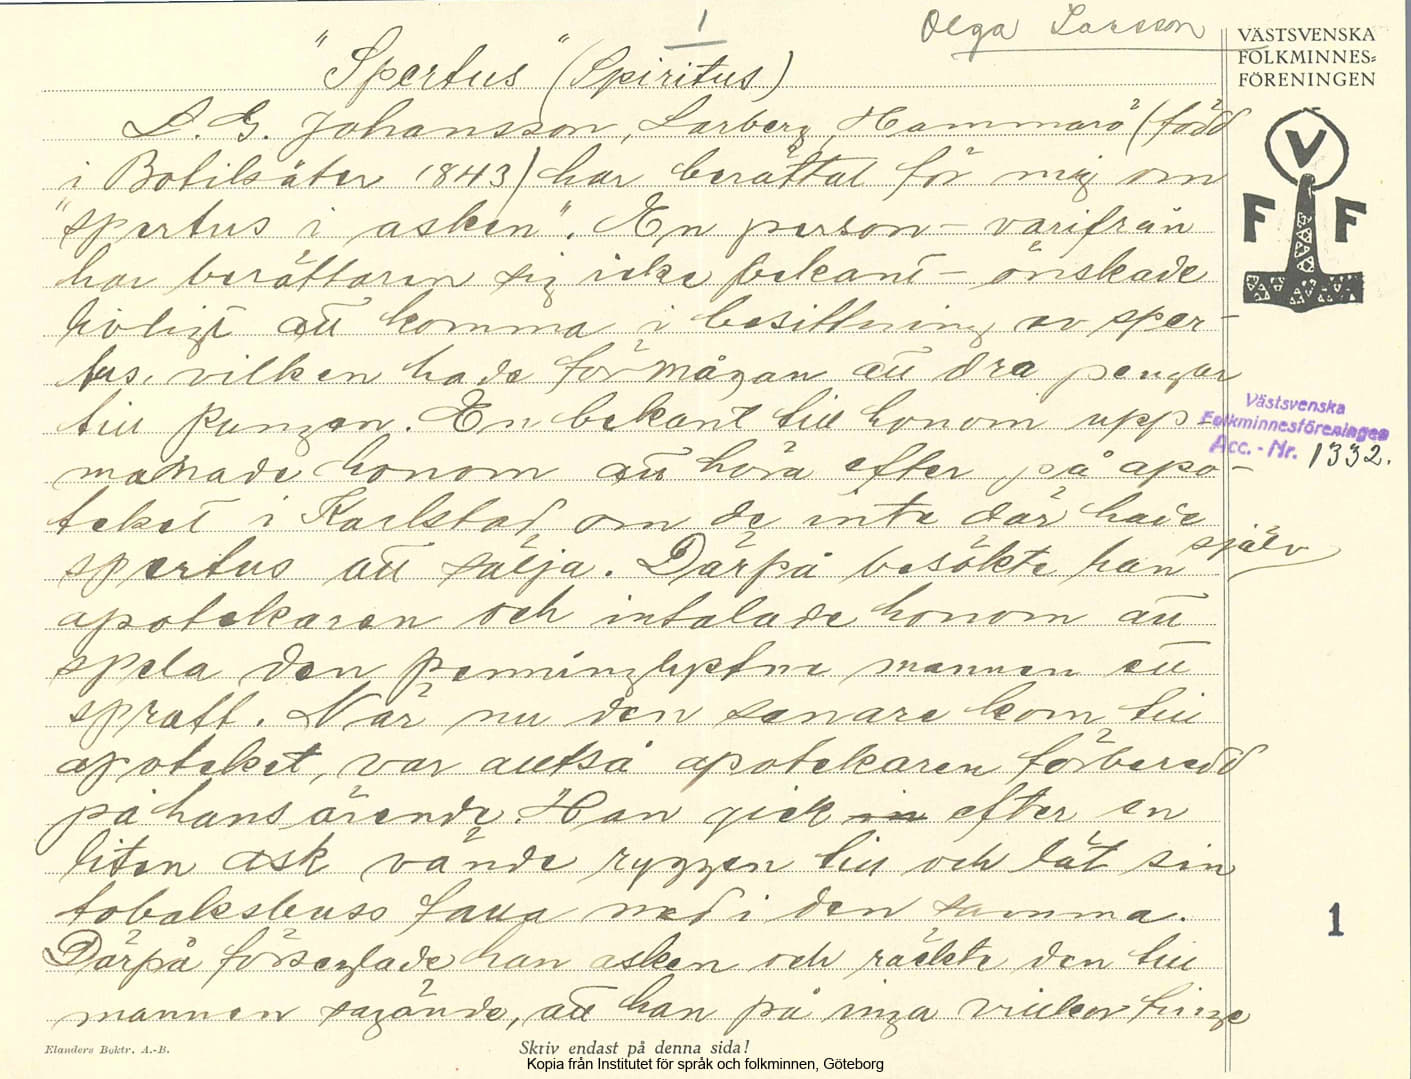 1
Olga Larsson
VÄSTSVENSKA
FOLKMINNES-
FÖRENINGEN
"Spertus" (Spiritus)
L. G. Johansson, Larberg, Hammarö (född
i Botilsäter 1843) har berättat för mig om
"spertus i asken". En person – varifrån
har berättaren sig icke bekant – önskade
livligt att komma i besittning av sper-
tus, vilken hade förmågan att dra pengar
till pungen. En bekant till honom upp
manade honom att höra efter på apo-
teket i Karlstad om de inte där hade
spertus att sälja. Därpå besökte han själv
apotekaren och intalade honom att
spela den penninglystne mannen ett
spratt. När nu den senare kom till
apoteket, var alltså apotekaren förberedd
på hans ärende. Han gick in efter en
liten ask vände ryggen till och lät sin
tobaksbuss falla ned i den samma.
Därpå förseglade han asken och räckte den till
mannen sägande, att han på inga villkor finge
V
F F
Västsvenska
Folkminnesföreningen
Acc. - Nr. 1332.
1
Elanders Boktr. A.-B.
Skriv endast på denna sida!
Kopia från Institutet för språk och folkminnen, Göteborg